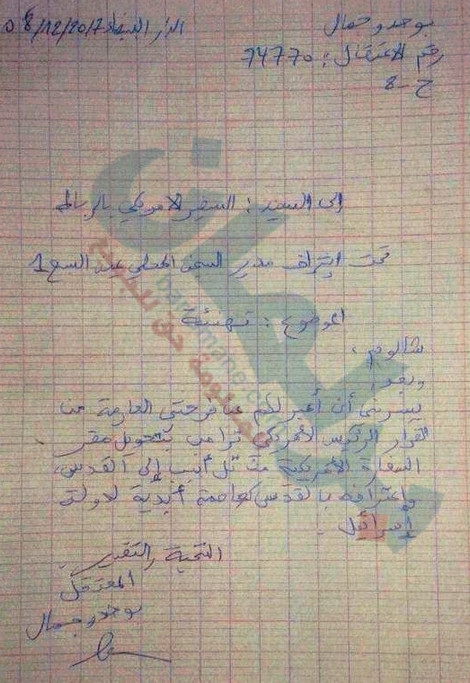 بوجدو جمال
الدار البيضاء 08/12/2017
رقم الاعتقال: 74770
ح - 8
إلى السيد: السفير الأمريكي بالرباط
تحت إشراف مدير السجن المحلي عين السبع 1
الموضوع: تهنئة
شالوم،
وبعد،
يسرني أن أعبر لكم عن فرحتي العارمة من
القرار الرئيس الأمريكي ترامب بتحويل مقر
السفارة الأمريكية من تل أبيب إلى القدس،
واعترافه بالقدس كعاصمة أبدية لدولة
إسرائيل.
التحية والتقدير
المعتقل
بوجدو جمال
barlamane.com